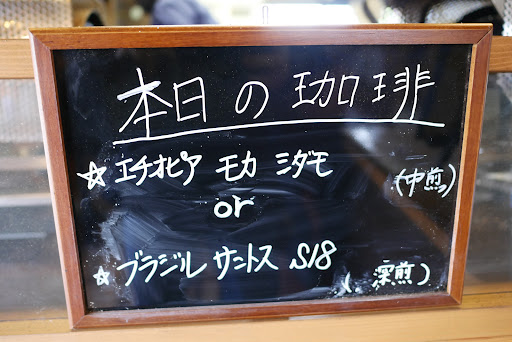 本日の珈琲
☆エチオピア モカ シダモ (中煎)
or
☆ブラジル サントス S18 (深煎)